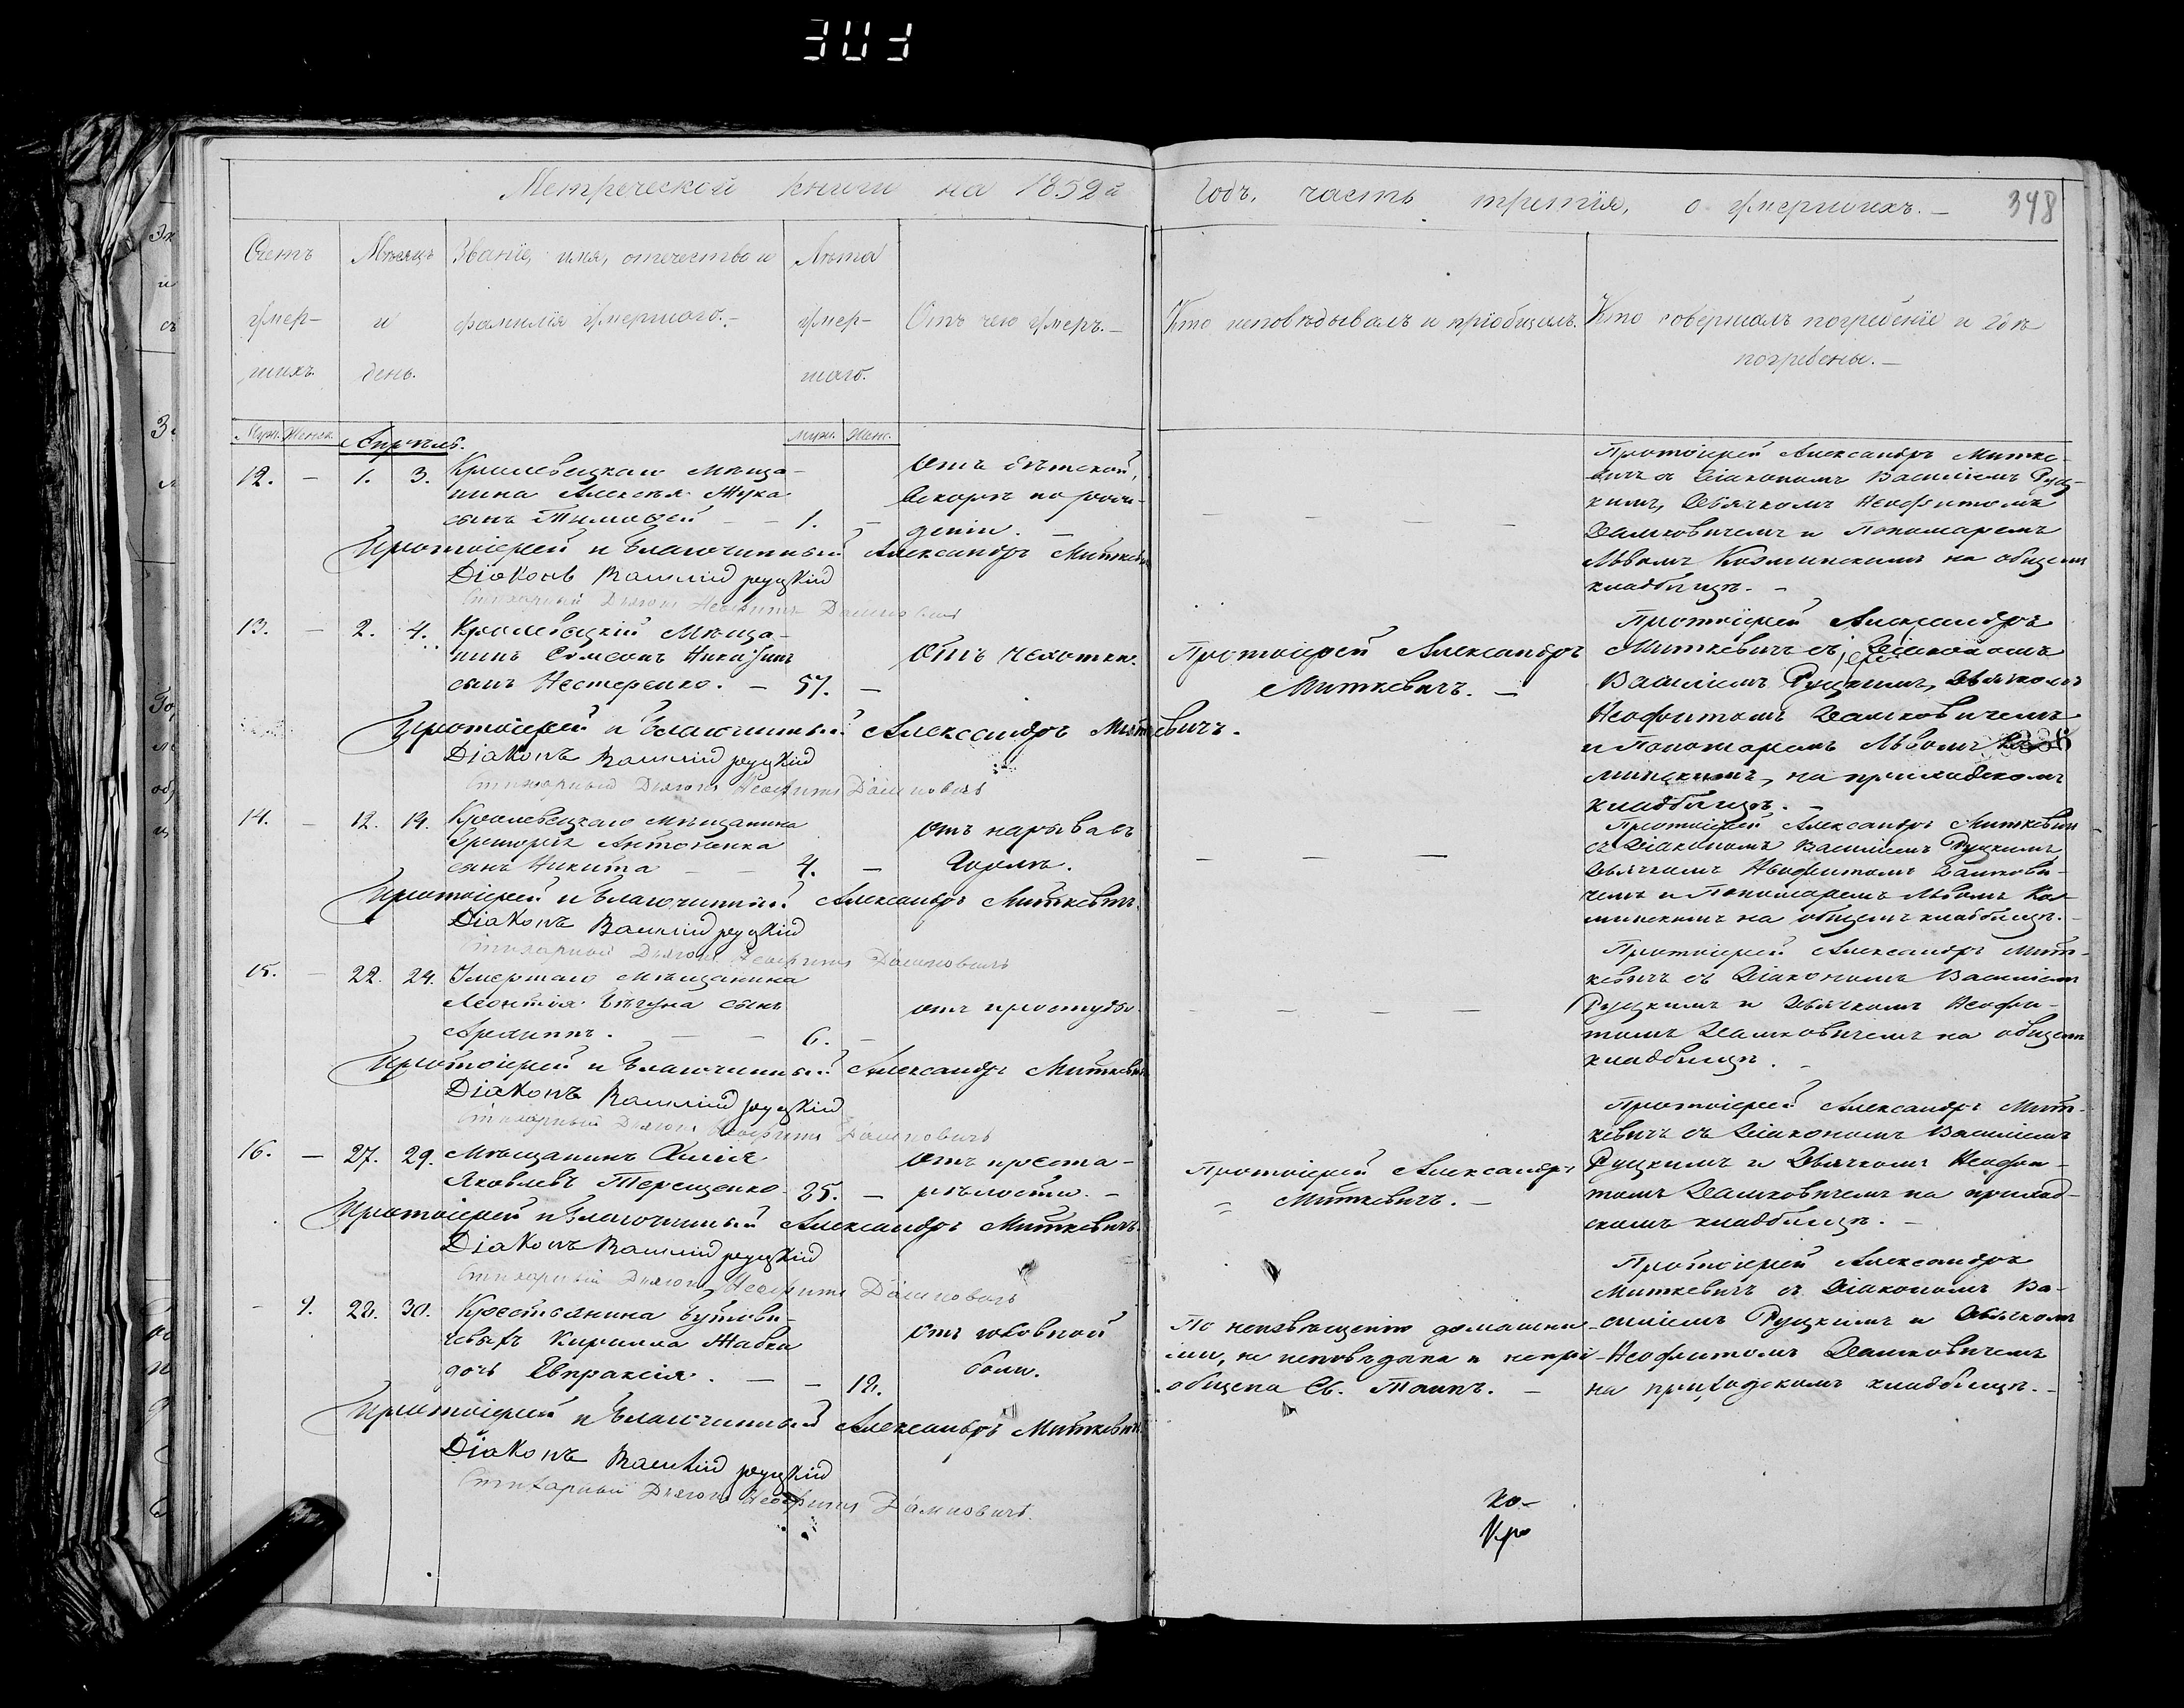 Метрической книги на 1852й годъ, часть третія, о умершихъ. —
348
Счетъ умер-шихъ.
Мѣсяцъ и день.
Званіе, имя, отечество и фамилія умершаго. —
Лѣта умер-шаго.
Отъ чего умеръ. —
Кто исповѣдывалъ и пріобщалъ.
Кто совершалъ погребеніе и гдѣ погребены. —
Муж. Женск.
Муж. Жен.
Апрѣль.
12. — 1. 3. Кролевецкаго мѣща-
нина Алексѣя Жука
сынъ Тимофей — — 1. —
Отъ дѣтской,
вскорѣ по рож-
деніи. —
— — — —
Протоіерей Александръ Митке-
вичъ съ Діакономъ Василіемъ Руц-
кимъ, Дьячкомъ Неофитомъ
Дашковичемъ и Пономаремъ
Львомъ Козминскимъ на общемъ
кладбищѣ. —
Протоіерей и Благочинный Александръ Миткевичъ
Діаконъ Василій Руцкій
Стихарный Дьячокъ Неофитъ Дашковичъ
13. — 2. 4. Кролевецкій Мѣща-
нинъ Симеонъ
сынъ Нестеренко. — 57. —
Отъ чахотки.
Протоіерей Александръ
Миткевичъ. —
Протоіерей Александръ
Миткевичъ съ Діакономъ
Василіемъ Руцкимъ, Дьячкомъ
Неофитомъ Дашковичемъ
и Пономаремъ Львомъ Коз-
минскимъ, на приходскомъ
кладбищѣ. —
Протоіерей и Благочинный Александръ Миткевичъ.
Діаконъ Василій Руцкій
Стихарный Дьячокъ Неофитъ Дашковичъ
14. — 12. 14. Кролевецкаго мѣщанина
Григорія Антоненка
сынъ Никита — — 4. —
отъ нарыва въ
горлѣ.
— — —
Протоіерей Александръ Миткевичъ
съ Діакономъ Василіемъ Руцкимъ
Дьячкомъ Неофитомъ Дашкови-
чемъ и Пономаремъ Львомъ Коз-
минскимъ на общемъ кладбищѣ. —
Протоіерей и Благочинный Александръ Миткевичъ.
Діаконъ Василій Руцкій
Стихарный Дьячокъ Неофитъ Дашковичъ
15. — 22. 24. Умершаго мѣщанина
Леонтія Бѣгуна сынъ
— — 6. —
отъ простуды.
— — — —
Протоіерей Александръ Мит-
кевичъ съ Діакономъ Василіемъ
Руцкимъ и Дьячкомъ Неофи-
томъ Дашковичемъ на общемъ
кладбищѣ.
Протоіерей и Благочинный Александръ Миткевичъ
Діаконъ Василій Руцкій
Стихарный Дьячокъ Неофитъ Дашковичъ
16. — 27. 29. Мѣщанинъ
Яковлевъ Терещенко 85. —
отъ преста-
рѣлости. —
Протоіерей Александръ
Миткевичъ. —
Протоіерей Александръ Мит-
кевичъ съ Діакономъ Василіемъ
Руцкимъ и Дьячкомъ Неофи-
томъ Дашковичемъ на приход-
скомъ кладбищѣ. —
Протоіерей и Благочинный Александръ Миткевичъ
Діаконъ Василій Руцкій
Стихарный Дьячокъ Неофитъ Дашковичъ
— 9. 28. 30. Крестьянина Бутови-
чевыхъ Кирилла Жабки
дочь Евпраксія. — — 12.
Отъ головной
боли.
По неизвѣщенію домашни-
ми, не исповѣдана и непрі-
общена Св. Таинъ. —
Протоіерей Александръ
Миткевичъ съ Діакономъ Ва-
силіемъ Руцкимъ и Дьячкомъ
Неофитомъ Дашковичемъ
на приходскомъ кладбищѣ. —
Протоіерей и Благочинный Александръ Миткевичъ
Діаконъ Василій Руцкій
Стихарный Дьячокъ Неофитъ Дашковичъ.